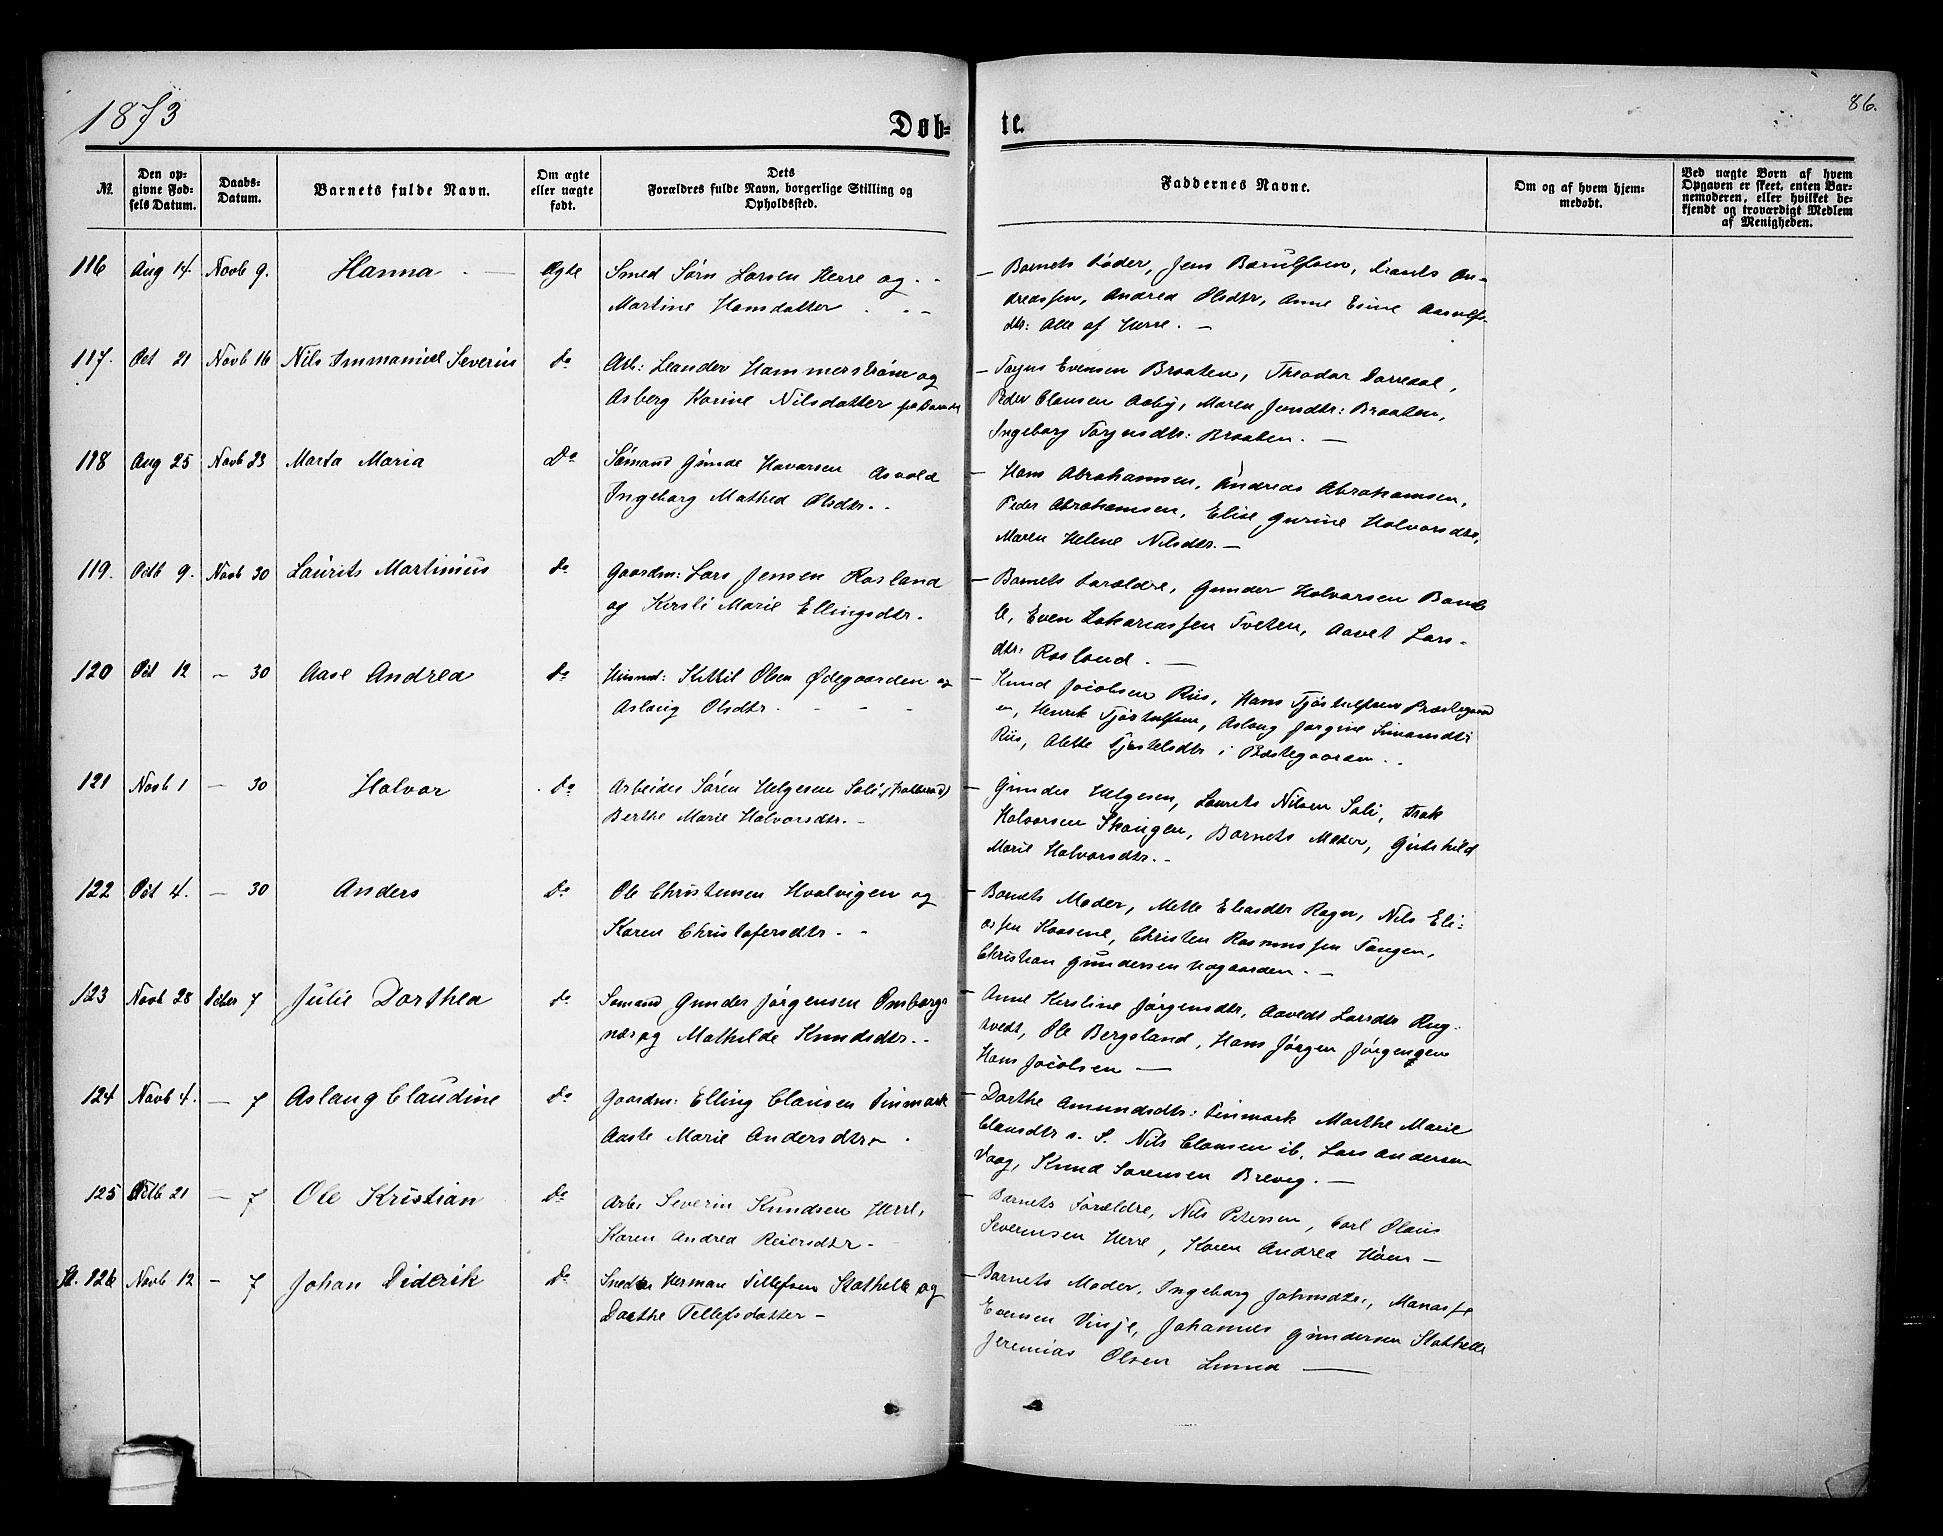 1873
Døb=
te.
86.
Nr.
Den op-
givne Fød-
sels Datum.
Daabs-
Datum.
Barnets fulde Navn.
Om ægte
eller uægte
født.
Dets
Forældres fulde Navn, borgerlige Stilling og
Opholdssted.
Faddernes Navne.
Om og af hvem hjem-
medøbt.
Ved uægte Børn af hvem
Opgaven er skeet, enten Bar-
nemoderen, eller hvilket be-
kjendt og troværdigt Medlem
af Menigheden.
116 Aug 14. Novb 9. Hanna Ægte Smed Sørn Larsen Herre og
Martine Hansdatter
Barnets Fader, Jens Barulfsen, Frants An-
dreassen, Andrea Olsdtr, Anne Esine Aasulfs-
dtr: Alle af Herre. -
117. Oct 21 Novb 16 Nils Immanuel Severin do Arb: Leander Hammerstrøm og
Asberg Karine Nilsdatter
Torjus Evensen Braaten, Theodor
Peder Clausen Aaby, Maren Jensdtr: Braaten,
Ingeborg Torjusdtr: Braaten. -
118 Aug 25 Novb 23 Marta Maria Do Sømand Gunde Havorsen Asvold
Ingeborg Mathea Olsdtr.
Hans Abrahamsen, Andreas Abrahamsen,
Peder Abrahamsen, Elise Gurine Halvorsdtr,
Maren Helene Nilsdtr. -
119. Octb 9. Novb 30 Laurits Martinius do Gaardm: Lars Jensen Rosland
og Kersti Marie Ellingsdtr.
Barnets Forældre, Gunder Halvorsen Bamb
le, Even Zakariassen Tveten, Aavet Lars-
dtr: Rosland. -
120 Oct 12 - 30 Aase Andrea do Husmd: Kittil Olsen Ødegaarden og
Aslaug Olsdtr.
Knud Jacobsen Riis, Hans Tjøstulfsen Præstegaard
en, Henrik Tjøstulfsen, Aslaug Jørgine Simonsdtr
Riis, Alette Tjøstelsdtr i Præstegaarden.
121 Novb 1 - 30 Halvor Do Arbeider Søren Helgesen Soli,
Berthe Marie Halvorsdtr. -
Gunder Helgesen, Laurits Nilsen Soli, Isak
Halvorsen Skougen, Barnets Moder, Gutshild
Marie Halvorsdtr. -
122 Oct 4. - 30 Anders Do Ole Christensen Hvalvigen og
Karen Christofersdtr.
Barnets Moder, Mette Eliasdtr Roger, Nils Eli-
assen Kaasene, Christen Rasmussen Tangen,
Christian Gundersen Nøgaarden. -
123 Novb 28 Dcber 7 Julie Dorthea do Sømand Gunder Jørgensen Omborgs-
næs og Mathilde Knudsdtr.
Anne Kirstine Jørgensdtr, Aavedt Larsdtr Rug-
tvedt, Ole Bergsland, Hans Jørgen Jørgengen
Hans Jacobsen -
124 Novb 4. - 7 Aslaug Claudine do Gaardm: Elling Clausen Finmark
Aaste Marie Andersdtr
Dorthe Amundsdtr: Finmark Marthe Marie
Clausdtr s. S. Nils Clausen ib. Lars Andersen
Vaag, Knud Sørensen Brevig. -
125 Octb 21 - 7 Ole Kristian Do Arb: Severin Knudsen Herre,
Karen Andrea Reiersdtr -
Barnets Forældre, Nils Petersen, Carl Olaus
Severinsen Herre, Karen Andrea Høen -
St. 126 Novb 12 - 7 Johan Diderik Do Snedker Herman Tellefsen Stathelle og
Dorthe Tellefsdatter -
Barnets Moder, Ingeborg Johnsdtr, Manasse
Evensen Vinje, Johannes Gundersen Stathelle
Jeremias Olsen Lunna -